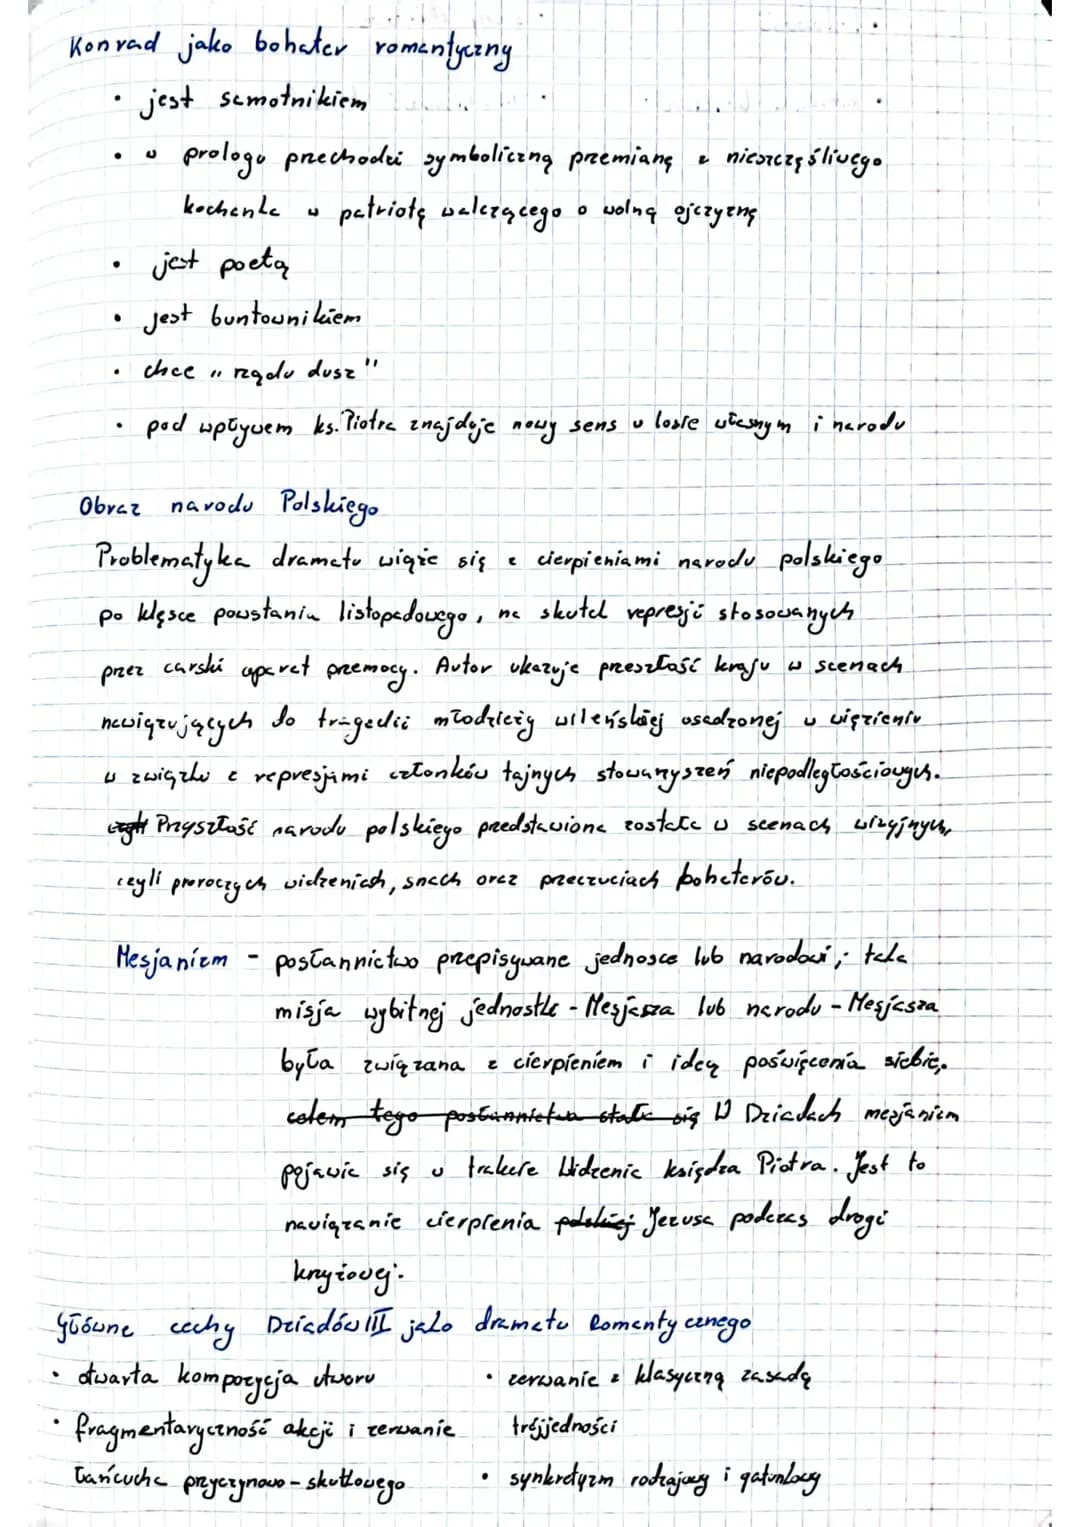 Konrad jako bohater romantyczny
• jest samotnikiem
• w prologu przechodzi symboliczną przemianę z nieszczęśliwego
kochanka w patriotę walczącego o wolną ojczyznę
• jest poetą
• jest buntownikiem
• chce „rządu dusz"
• pod wpływem ks. Piotra znajduje nowy sens w losie własnym i narodu
Obraz narodu Polskiego
Problematyka dramatu wiąże się z cierpieniami narodu polskiego
po klęsce powstania listopadowego, na skutek represji stosowanych
przez carski aparat przemocy. Autor ukazuje przeszłość kraju w scenach
nawiązujących do tragedii młodzieży wileńskiej osadzonej w więzieniu
w związku z represjami członków tajnych stowarzyszeń niepodległościowych.
czyli Przyszłość narodu polskiego przedstawiona została w scenach wizyjnych,
czyli proroczych widzeniach, snach oraz przeczuciach bohaterów.
Mesjanizm - posłannictwo przepisywane jednosce lub narodowi; taka
misja wybitnej jednostki - Mesjasza lub narodu - Mesjasza
była związana z cierpieniem i ideą poświęcenia siebie.
celem tego posłannictwa stało się W Dziadach mesjanizm
pojawia się w trakcie Widzenia księdza Piotra. Jest to
nawiązanie cierpienia polskiej Jezusa podczas drogi
krzyżowej.
Główne cechy Dziadów III jako dramatu Romantycznego
• otwarta kompozycja utworu
• fragmentaryczność akcji i zerwanie
łańcucha przyczynowo-skutkowego
• zerwanie z klasyczną zasadą
trójjedności
• synkretyzm rodzajowy i gatunkowy